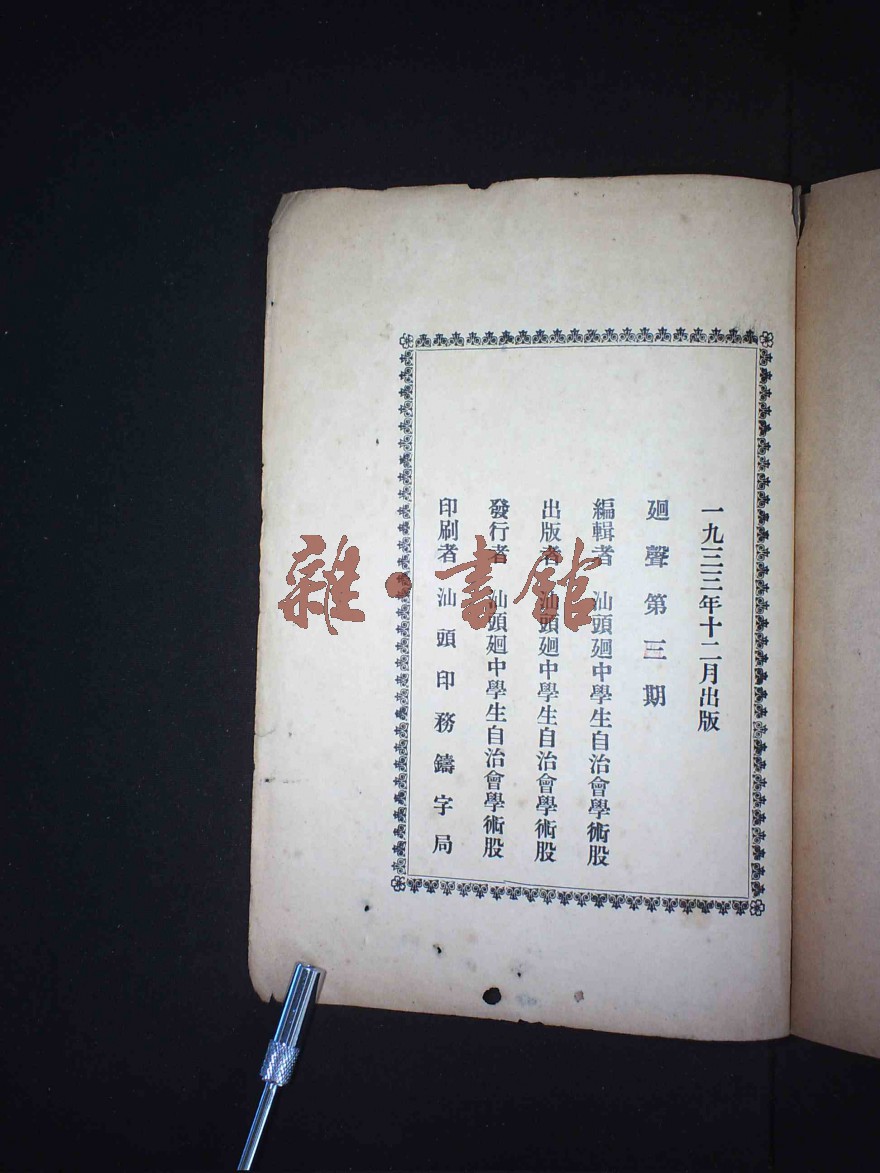 一九三三年十二月出版
廻聲第三期
編輯者 汕頭廻中學生自治會學術股
出版者 汕頭廻中學生自治會學術股
發行者 汕頭廻中學生自治會學術股
印刷者 汕頭印務鑄字局
雜·書館